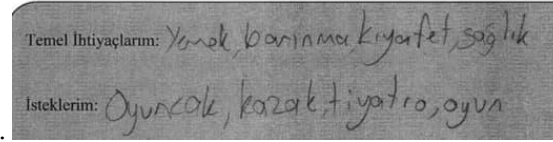 Temel İhtiyaçlarım: Yemek, barınma, kıyafet, sağlık
İsteklerim: Oyuncak, kazak, tiyatro, oyun